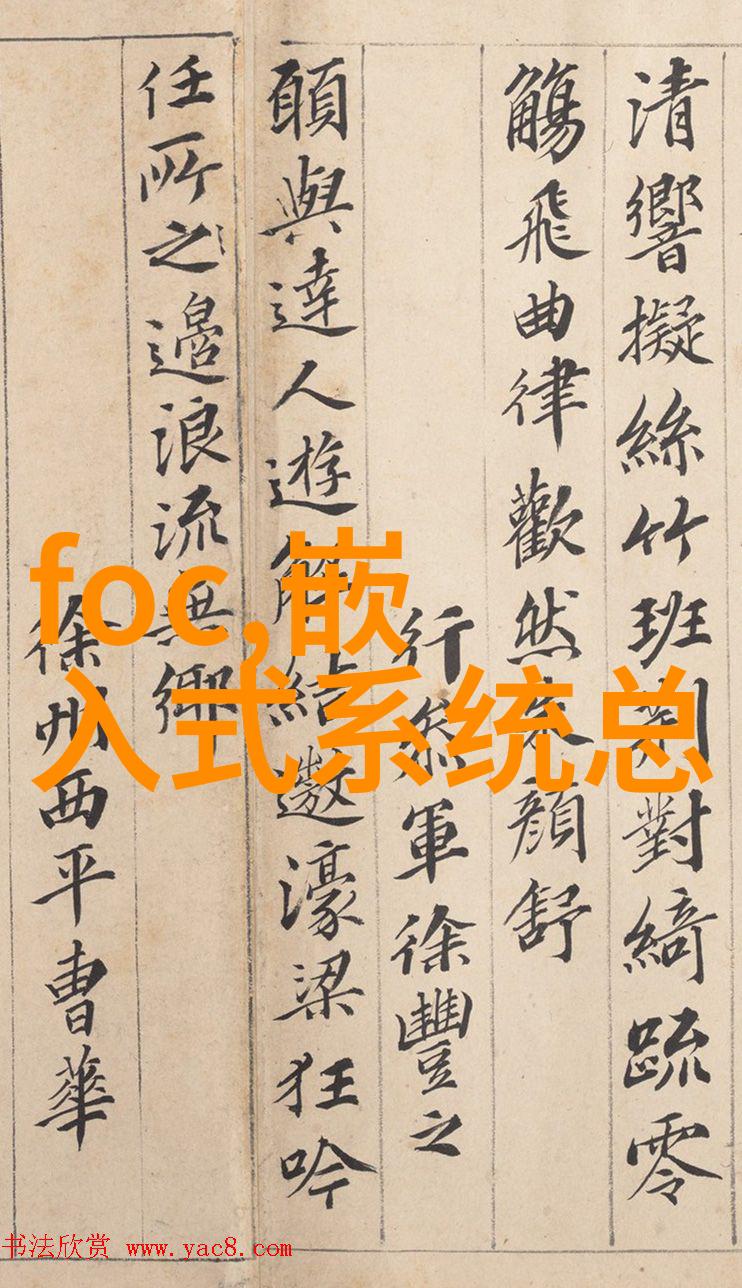 清響擬絲竹班荆對綺疏零
觴飛曲律歡然朱顔舒
行叅軍徐豐之
願與達人遊解結遨濠梁狂吟
任所之邉浪流無鄉
徐州西平曹華
foc,嵌
入式系统总
书法欣赏 www.yac8.com